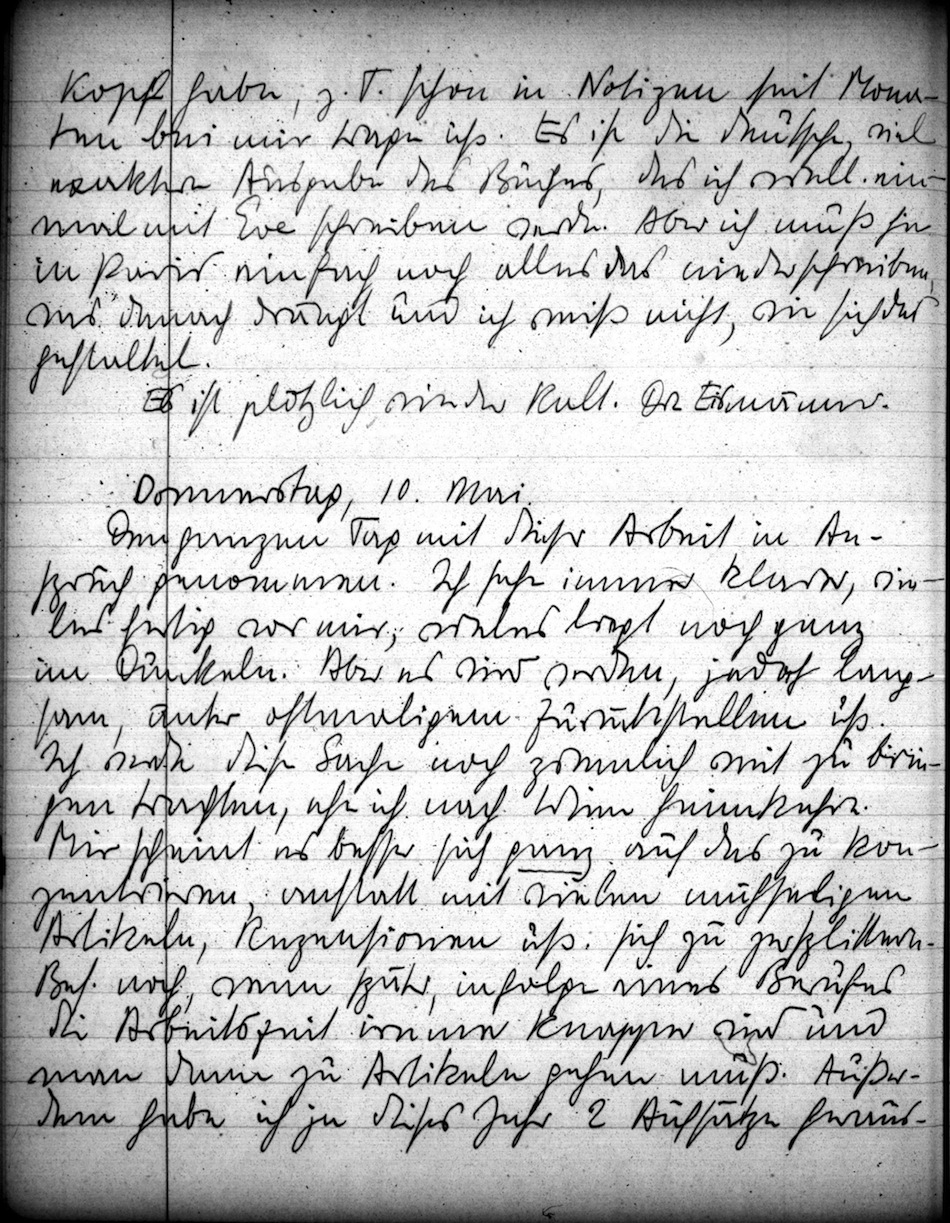 Kopf habe, z. T. schon in Notizen seit Mona-
ten bei mir trage usf. Es ist die deutsche, viel
exaktere Ausgabe des Buches, das ich vielleicht ein-
mal mit Eve schreiben werde. Aber ich muß ja
in Paris einfach noch alles das niederschreiben,
was danach drängt und ich weiß nicht, wie sich das
gestaltet.
Es ist plötzlich wieder kalt. Die Eismänner.
Donnerstag, 10. Mai.
Den ganzen Tag mit dieser Arbeit in An-
spruch genommen. Ich sehe immer klarer, vie-
les fertig vor mir, vieles liegt noch ganz
im Dunkeln. Aber es wird werden, jedoch lang-
sam, unter oftmaligem Zurückstellen usf.
Ich werde diese Sache noch ziemlich weit zu brin-
gen trachten, ehe ich nach Wien heimkehre.
Mir scheint es besser sich ganz auf das zu kon-
zentrieren, anstatt mit vielen mühseligen
Artikeln, Rezensionen usf. sich zu zersplittern.
Bes. noch, wenn später, infolge eines Berufes
die Arbeitszeit immer knapper wird und
man dann zu Artikeln gehen muß. Außer-
dem habe ich ja dieses Jahr 2 Aufsätze heraus-